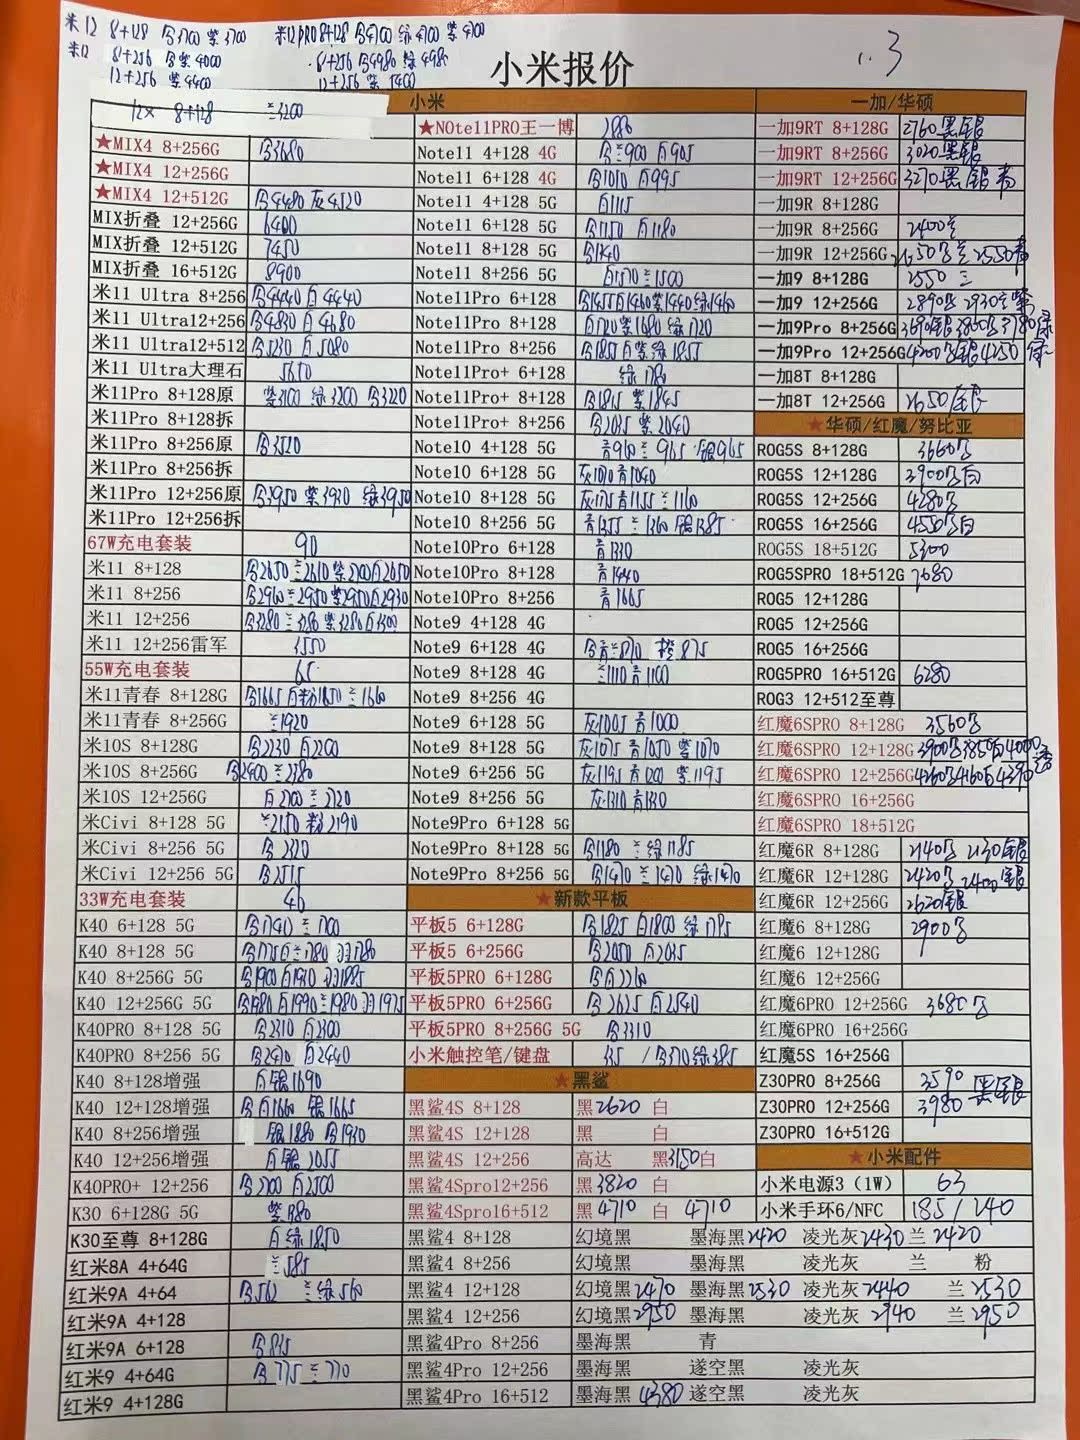 米12 8+128 3700 紫3700 米12PRO 8+128 4700 绿4700 紫4700
米12 8+256 紫4000 8+256 4980 绿4980
12+256 紫4400 12+256 紫5400
小米报价
1.3
小米
一加/华硕
12X 8+128 兰3200
★NOte11PRO王一博
一加9RT 8+128G 2760黑银
★MIX4 8+256G 3680
Note11 4+128 4G 兰900 白905
一加9RT 8+256G 3020黑银
★MIX4 12+256G
Note11 6+128 4G 1010 白995
一加9RT 12+256G 3270黑银青
★MIX4 12+512G 4480 灰4520
Note11 4+128 5G 白1115
一加9R 8+128G
MIX折叠 12+256G 6400
Note11 6+128 5G 1150 白1180
一加9R 8+256G 2400
MIX折叠 12+512G 7450
Note11 8+128 5G
一加9R 12+256G 2550青
MIX折叠 16+512G 8900
Note11 8+256 5G 兰1500
一加9 8+128G 2550
米11 Ultra 8+256 4440 白4440
Note11Pro 6+128 1455 白1460 紫1440 绿1460
一加9 12+256G 2890 2930
米11 Ultra12+256 4830 白4680
Note11Pro 8+128 白1720 紫1680 绿1720
一加9Pro 8+256G
米11 Ultra12+512 5230 白5080
Note11Pro 8+256 1855 白紫绿1855
一加9Pro 12+256G 4200 银4250
米11 Ultra大理石 5650
Note11Pro+ 6+128 绿1780
一加8T 8+128G
米11Pro 8+128原 紫3100 绿3200 3220
Note11Pro+ 8+128 1815 紫1845
一加8T 12+256G 2650
米11Pro 8+128拆
Note11Pro+ 8+256 2035 紫2040
★华硕/红魔/努比亚
米11Pro 8+256原 3520
Note10 4+128 5G 青960 兰965 银965
ROG5S 8+128G 3660
米11Pro 8+256拆
Note10 6+128 5G 青1040
ROG5S 12+128G 3900 白
米11Pro 12+256原 3950 紫3930 绿3950
Note10 8+128 5G 青1155 兰1160
ROG5S 12+256G 4280
米11Pro 12+256拆
Note10 8+256 5G 青1355 兰1360 银1385
ROG5S 16+256G 4550 白
67W充电套装 90
Note10Pro 6+128 青1330
ROG5S 18+512G 5300
米11 8+128 2650 兰2610 紫2700 白2650
Note10Pro 8+128 青1440
ROG5SPRO 18+512G 7680
米11 8+256 2960 兰2950 紫2950 白2930
Note10Pro 8+256 青1665
ROG5 12+128G
米11 12+256 3280 兰3280 紫3280 白3300
Note9 4+128 4G
ROG5 12+256G
米11 12+256雷军 3550
Note9 6+128 4G 橙875
ROG5 16+256G
55W充电套装 65
Note9 8+128 4G 兰1110 青1100
ROG5PRO 16+512G 6280
米11青春 8+128G 1665 白粉1650 兰1660
Note9 8+256 4G
ROG3 12+512至尊
米11青春 8+256G 兰1920
Note9 6+128 5G 灰1005 青1000
红魔6SPRO 8+128G 3560
米10S 8+128G 2230 白2200
Note9 8+128 5G 灰1075 青1050 紫1070
红魔6SPRO 12+128G 3900 3850白 4000透
米10S 8+256G 2400 兰2380
Note9 6+256 5G 灰1195 青1200 紫1195
红魔6SPRO 12+256G 4260 4160白 4390
米10S 12+256G 白2700 兰2720
Note9 8+256 5G 灰1310 青1330
红魔6SPRO 16+256G
米Civi 8+128 5G 兰2150 粉2190
Note9Pro 6+128 5G
红魔6SPRO 18+512G
米Civi 8+256 5G 2320
Note9Pro 8+128 5G 1180 兰绿1185
红魔6R 8+128G 2140 2130银
米Civi 12+256 5G 2515
Note9Pro 8+256 5G 1470 兰1470 绿1470
红魔6R 12+128G 2420 2400银
33W充电套装
★新款平板
红魔6R 12+256G 2620银
K40 6+128 5G 1740 兰1700
平板5 6+128G 1825 白1800 绿1795
红魔6 8+128G 2900
K40 8+128 5G 1775 白兰1780 羽1780
平板5 6+256G 2050 白2035
红魔6 12+128G
K40 8+256G 5G 1900 白1910 羽1885
平板5PRO 6+128G 白2260
红魔6 12+256G
K40 12+256G 5G 1980 白1990 兰1980 羽1975
平板5PRO 6+256G 2625 白2540
红魔6PRO 12+256G 3680
K40PRO 8+128 5G 2310 白2300
平板5PRO 8+256G 5G 3310
红魔6PRO 16+256G
K40PRO 8+256 5G 2470 白2440
小米触控笔/键盘 / 370 绿385
红魔5S 16+256G
K40 8+128增强 白银1690
★黑鲨
Z30PRO 8+256G 3590 黑银
K40 12+128增强 白1660 银1665
黑鲨4S 8+128 黑2620 白
Z30PRO 12+256G 3980
K40 8+256增强 银1880 1930
黑鲨4S 12+128 黑 白
Z30PRO 16+512G
K40 12+256增强 白银2055
黑鲨4S 12+256 高达 黑3150白
★小米配件
K40PRO+ 12+256 2700 白2500
黑鲨4Spro12+256 黑3820 白
小米电源3（1W） 63
K30 6+128G 5G
黑鲨4Spro16+512 黑4710 白 4710
小米手环6/NFC 185/240
K30至尊 8+128G 白绿1850
黑鲨4 8+128 幻境黑 墨海黑2420 凌光灰2430 兰2420
红米8A 4+64G 兰585
黑鲨4 8+256 幻境黑 墨海黑 凌光灰 兰 粉
红米9A 4+64 兰绿560
黑鲨4 12+128 幻境黑2470 墨海黑2530 凌光灰2440 兰2530
红米9A 4+128
黑鲨4 12+256 幻境黑2950 墨海黑 凌光灰2940 兰2950
红米9A 6+128
黑鲨4Pro 8+256 墨海黑 青
红米9 4+64G 775 兰770
黑鲨4Pro 12+256 墨海黑 遂空黑 凌光灰
红米9 4+128G
黑鲨4Pro 16+512 墨海黑4380 遂空黑 凌光灰